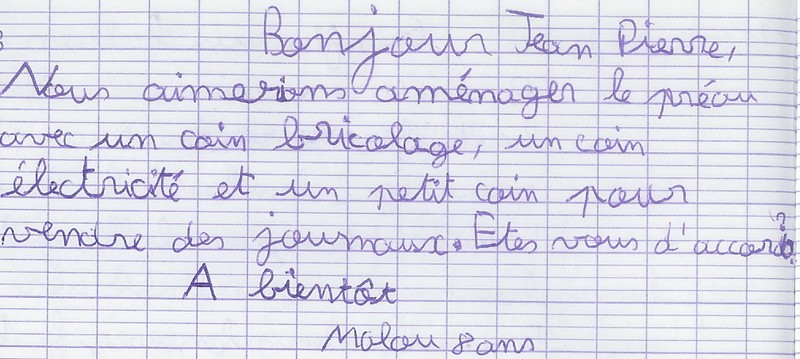 Bonjour Jean Pierre,
Nous aimerions aménager le préau
avec un coin bricolage, un coin
électricité et un petit coin pour
vendre des journaux. Etes vous d'accord?
A bientôt
Malou 8 ans